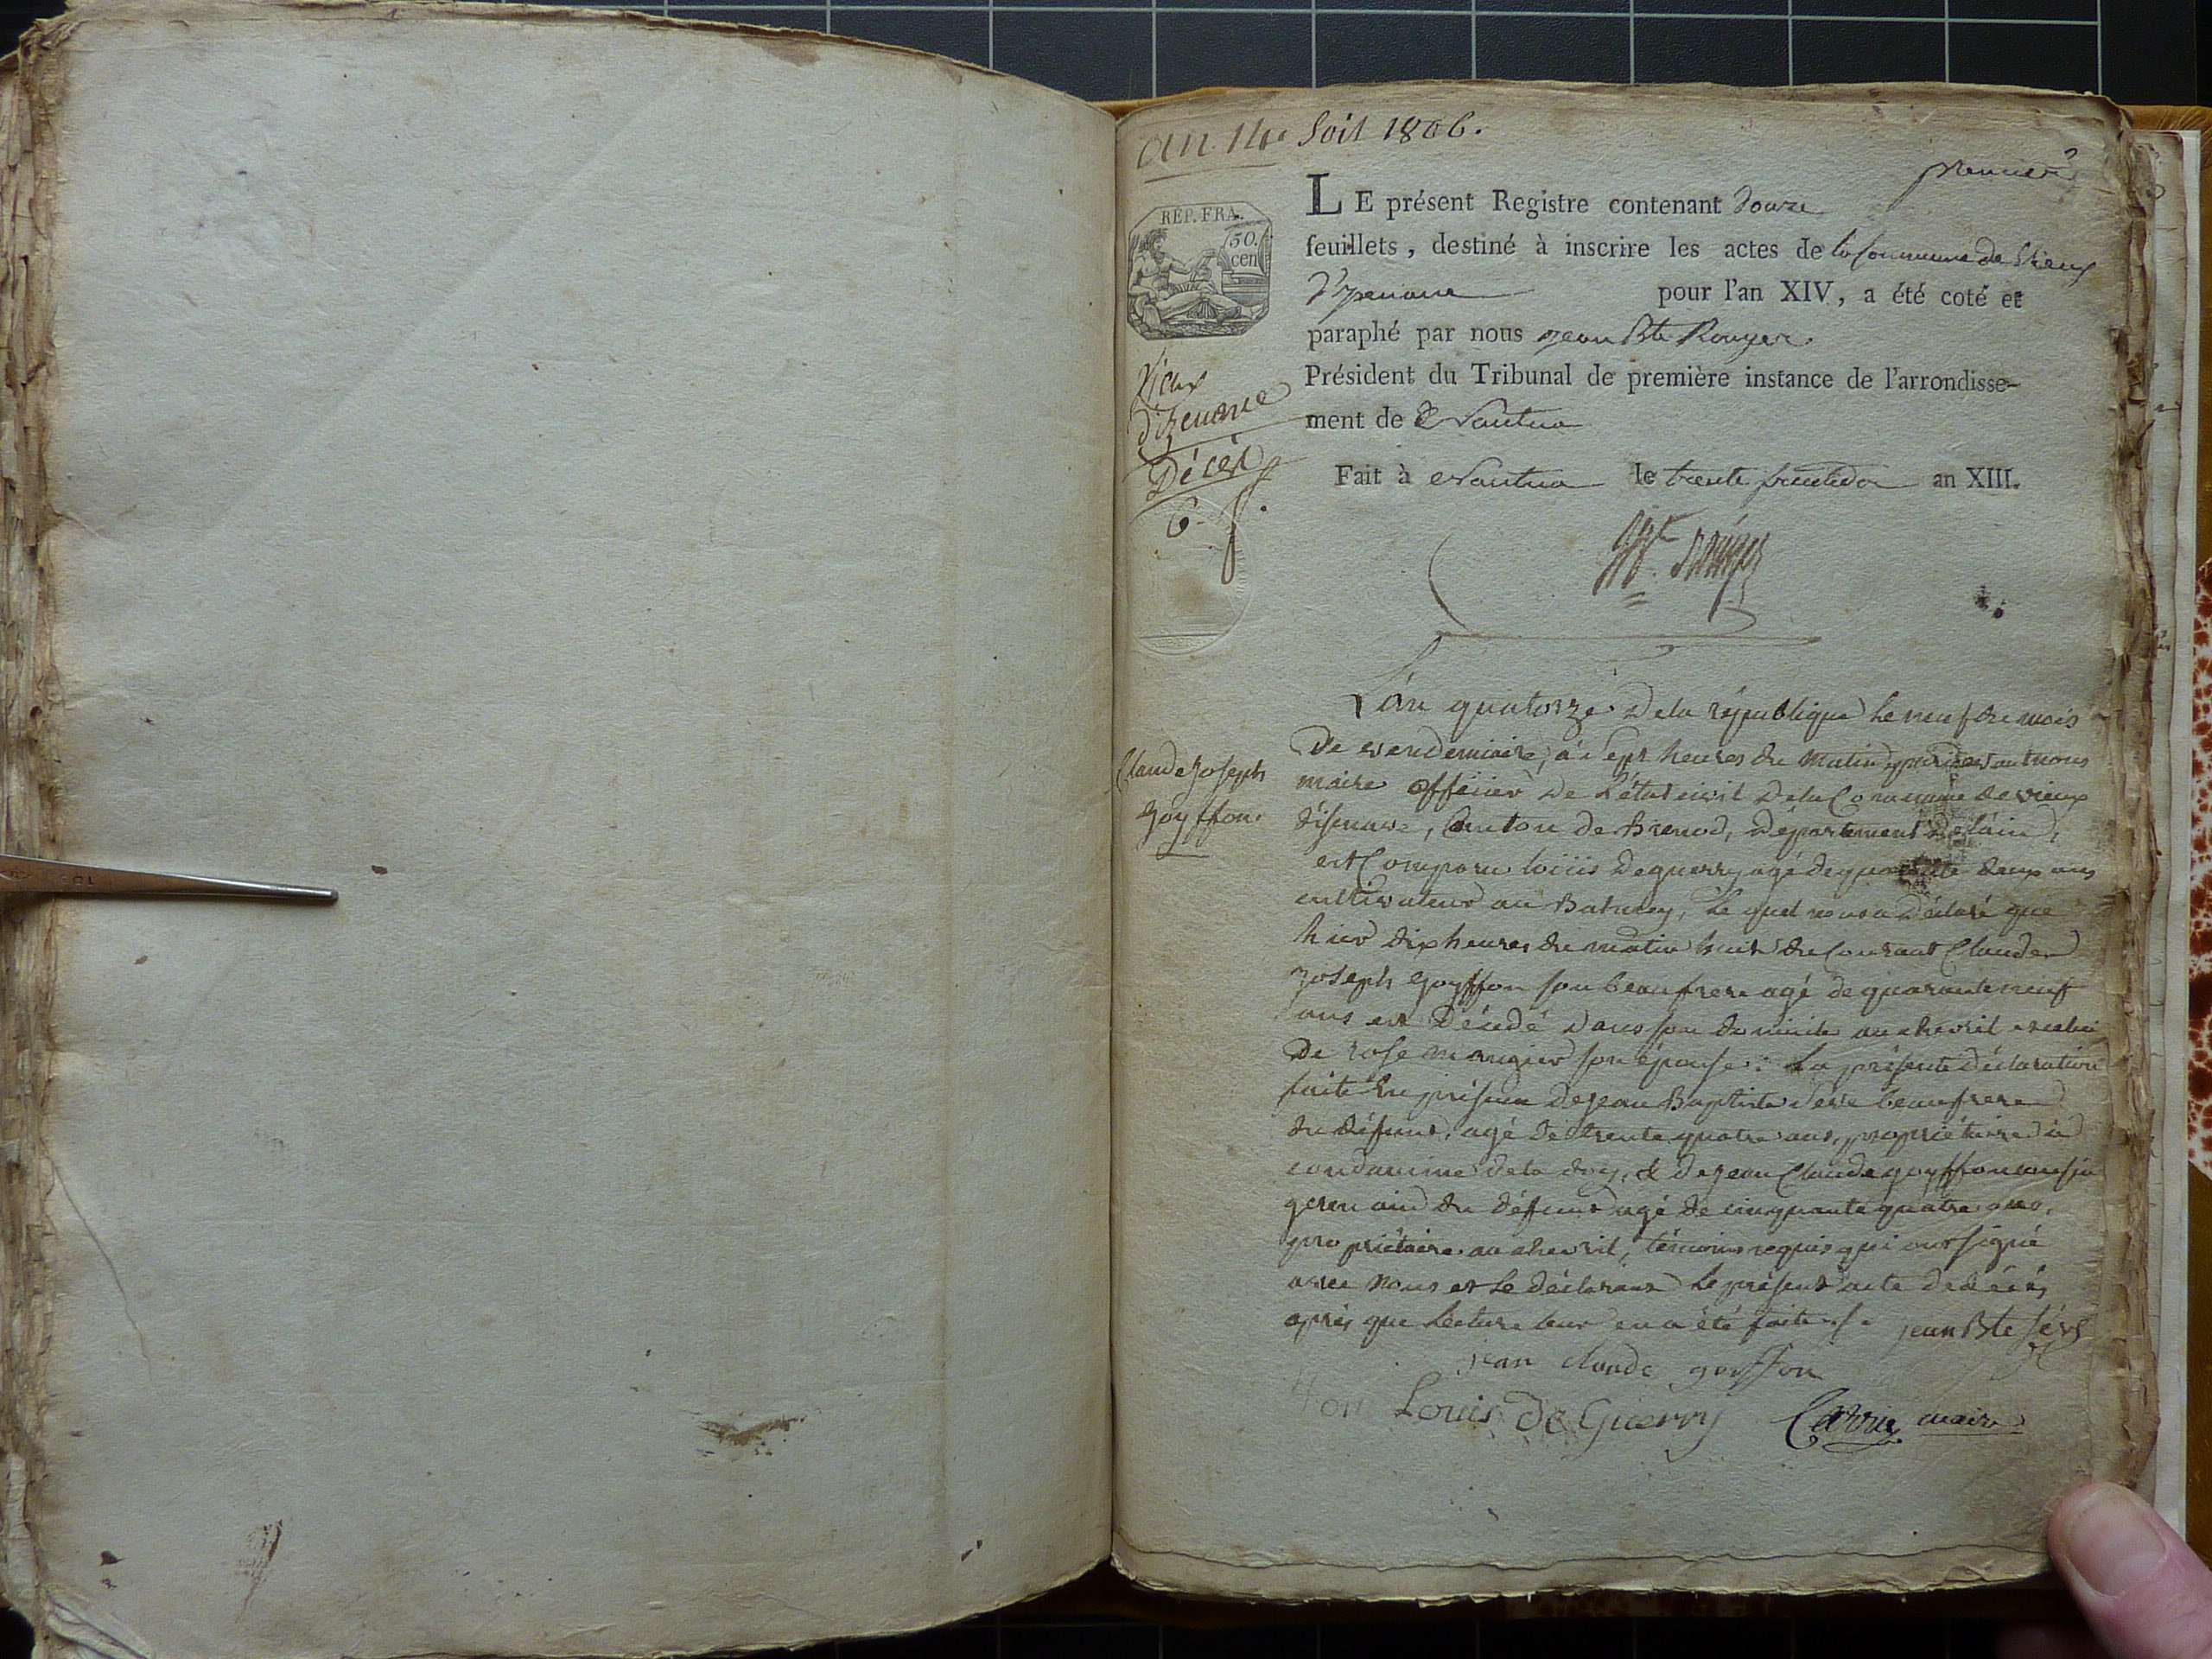 an 14e Soit 1806.
premier
REP. FRA.
50.
cen
LE présent Registre contenant douze
feuillets, destiné à inscrire les actes de la Commune de Vieux
d'Izenave pour l'an XIV, a été coté et
paraphé par nous Jean Bte Rouyer
Président du Tribunal de première instance de l'arrondisse-
ment de Nantua
Vieux
d'izenave
Décès
6.
Fait à Nantua le trente fructidor an XIII.
Claude Joseph
goyffon.
L'an quatorze de la république le neuf du mois
de vendemiaire, à sept heures du matin pardevant nous
maire officier de l'état civil de la Commune de vieux
d'isenave, Canton de Brenod, département de l'ain,
est Comparu loüis deguerry agé de quarante deux ans
cultivateur au Balmay, le quel nous a déclaré que
hier dix heures du matin huit du Courant Claude
Joseph goyffon son beaufrere agé de quarante neuf
ans est décédé dans son domicile au chevril
de rose mongier son épouse: La présente déclaration
faite en présence de jean Baptiste séve beaufrere
du défunt, agé de trente quatre ans, propriétaire à
condamine de la doy, & de jean Claude goyffon cousin
germain du défunt agé de cinquante quatre ans,
propriétaire au chevril, témoins requis qui ont signé
avec nous et le déclarant le présent acte de décès
après que lecture leur en a été faite. jean Bte séve
jean claude goyffon
Louis De Guerry maire